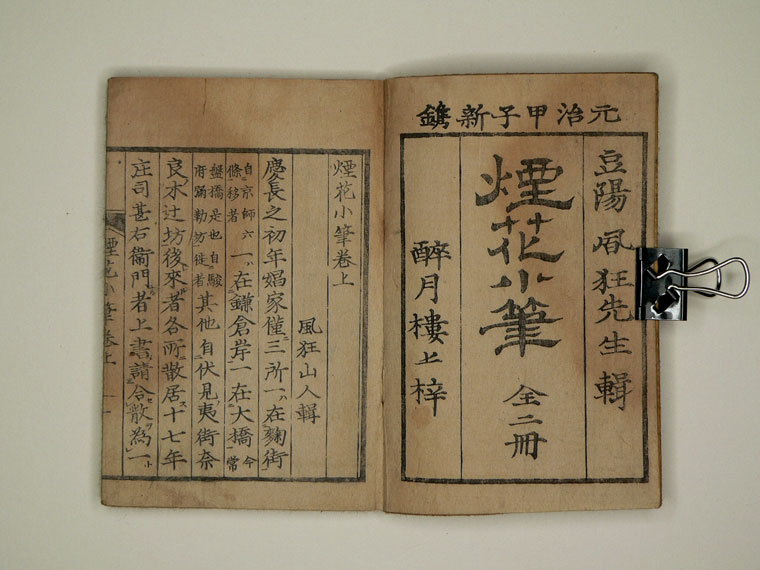 元治甲子新鐫
豆陽風狂先生輯
煙花小筆 全二冊
醉月樓上梓
煙花小筆卷上
風狂山人輯
慶長之初年娼家僅三所一ハ在麹街
自京師六條移者一ハ在鎌倉岸一在大橋今常
盤橋是也自駿府彌勒坊徙者其他自伏見夷街奈
良木辻坊後來者各所散居十七年
庄司甚右衞門者上書請合散為一
煙花小筆卷上 一